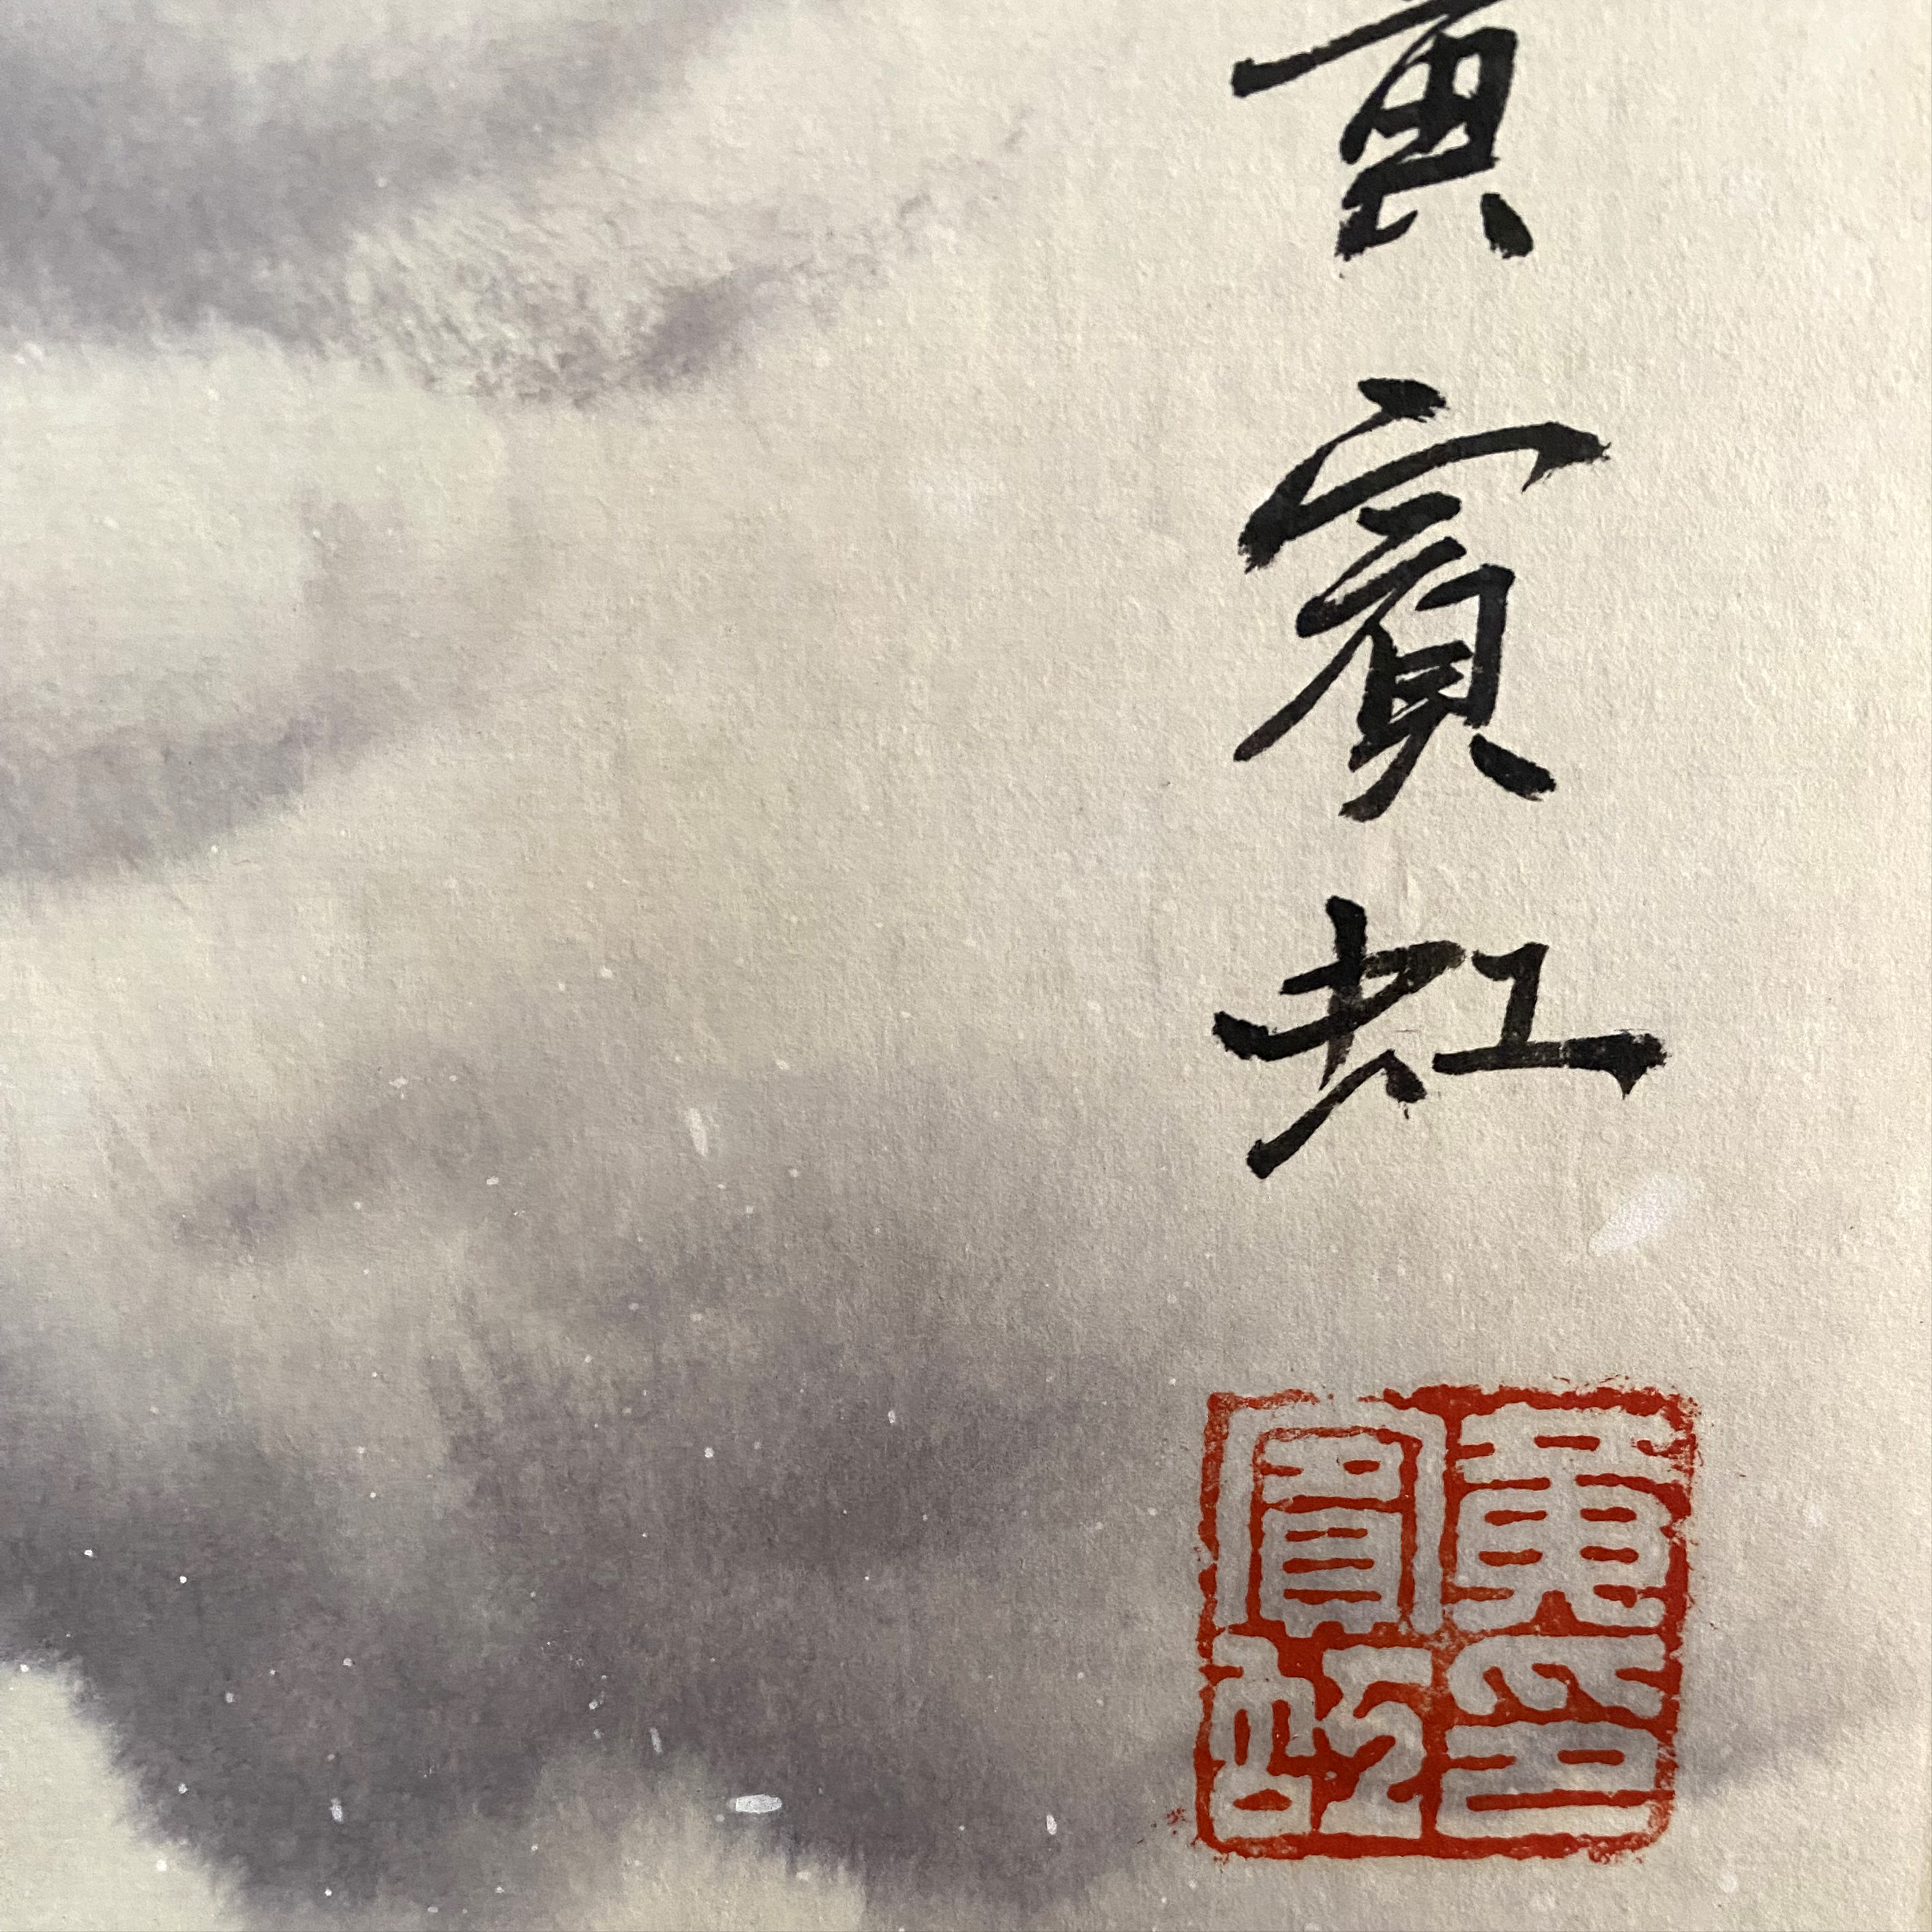 黄賓虹
黄賓虹印